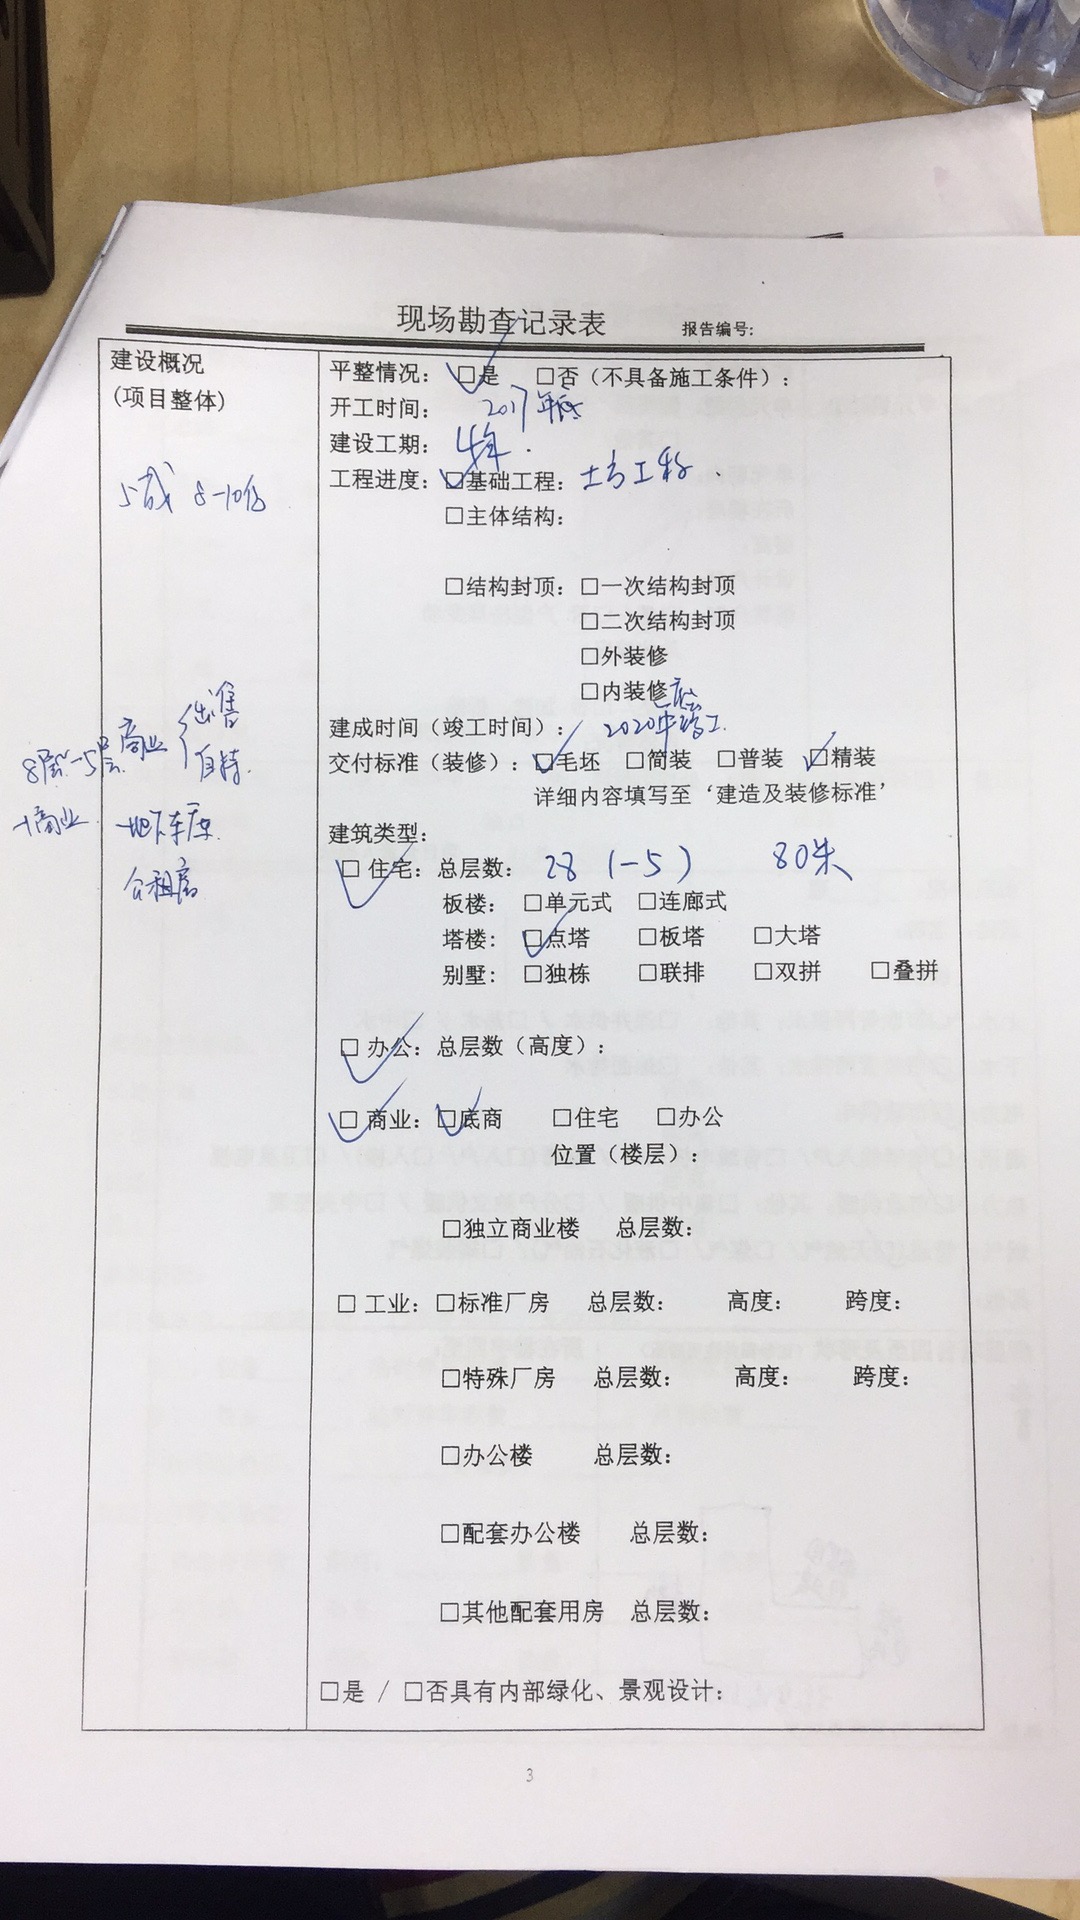 现场勘查记录表 报告编号:
建设概况
(项目整体)
5成 8-10亿
8层-5层 商业 出售
自持
商业 地下车库
公租房
平整情况: □是 □否(不具备施工条件):
开工时间: 2017年底
建设工期: 4年.
工程进度: □基础工程: 土方工程
□主体结构:
□结构封顶: □一次结构封顶
□二次结构封顶
□外装修
□内装修
建成时间(竣工时间): 2020年底竣工
交付标准(装修): □毛坯 □简装 □普装 □精装
详细内容填写至‘建造及装修标准’
建筑类型:
□ 住宅: 总层数: 28 (-5) 80米
板楼: □单元式 □连廊式
塔楼: □点塔 □板塔 □大塔
别墅: □独栋 □联排 □双拼 □叠拼
□ 办公: 总层数(高度):
□ 商业: □底商 □住宅 □办公
位置(楼层):
□独立商业楼 总层数:
□ 工业: □标准厂房 总层数: 高度: 跨度:
□特殊厂房 总层数: 高度: 跨度:
□办公楼 总层数:
□配套办公楼 总层数:
□其他配套用房 总层数:
□是 / □否具有内部绿化、景观设计:
3